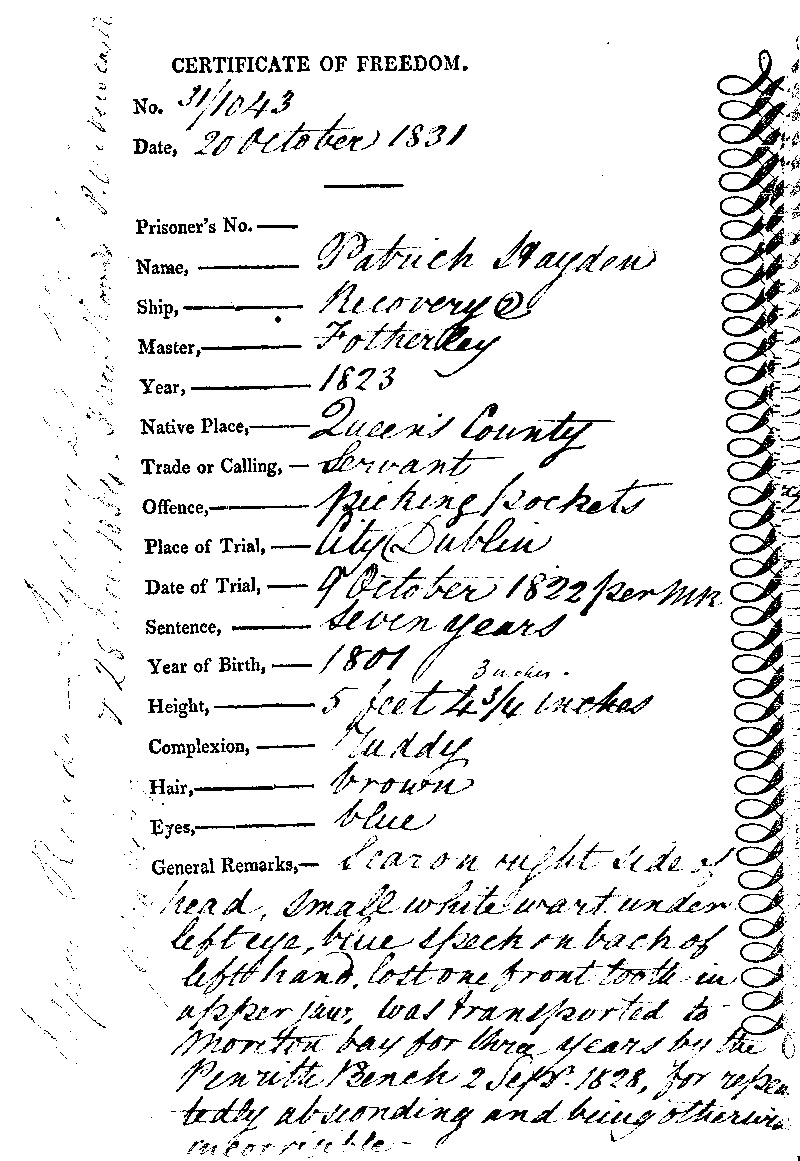 CERTIFICATE OF FREEDOM.
No. 31/1043
Date, 20 October 1831
Prisoner's No. —
Name, — Patrick Hayden
Ship, — Recovery 2
Master, — Fotherley
Year, — 1823
Native Place, — Queen's County
Trade or Calling, — Servant
Offence, — picking pockets
Place of Trial, — City Dublin
Date of Trial, — 9 October 1822 per
Sentence, — seven years
Year of Birth, — 1801
3 inches.
Height, — 5 feet 4 3/4 inches
Complexion, — Ruddy
Hair, — brown
Eyes, — blue
General Remarks, — Scar on right side of
head, small white wart under
left eye, blue speck on back of
left hand, lost one front tooth in
upper jaw, was transported to
Moreton bay for three years by the
Penrith Bench 2 Septr. 1828, for repea
tedly absconding and being otherwise
incorrigible —